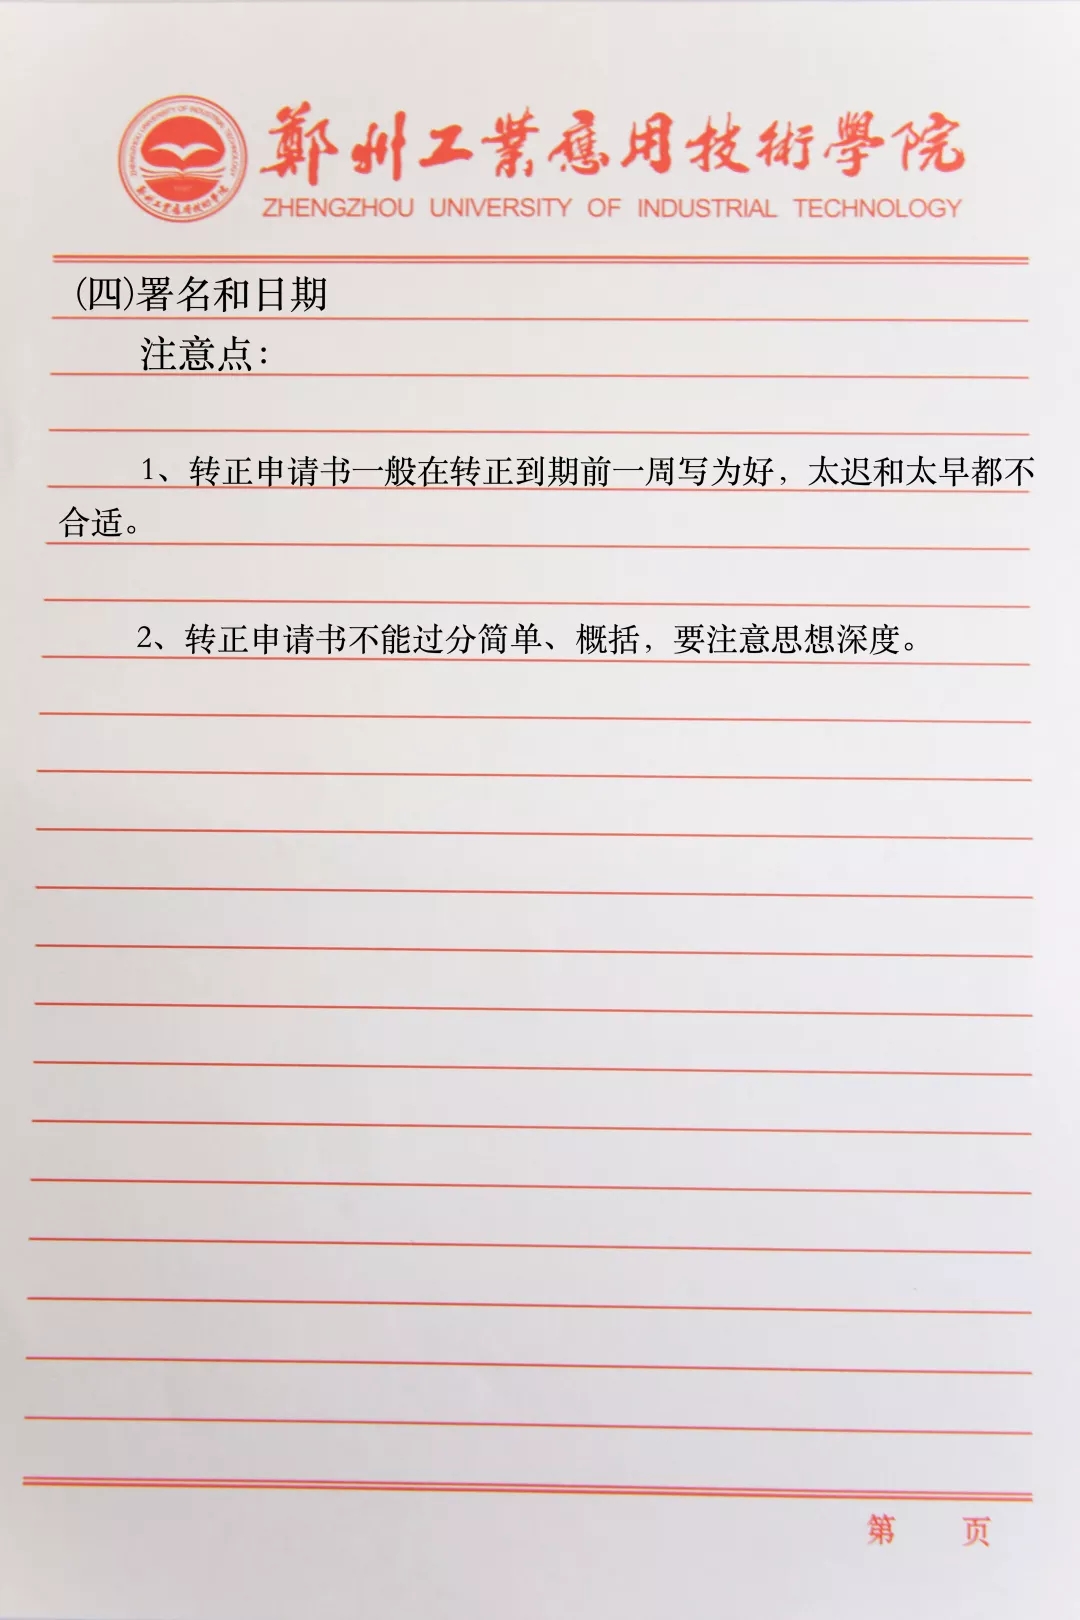 鄭州工業應用技術學院
ZHENGZHOU UNIVERSITY OF INDUSTRIAL TECHNOLOGY
(四)署名和日期
注意点：
1、转正申请书一般在转正到期前一周写为好，太迟和太早都不
合适。
2、转正申请书不能过分简单、概括，要注意思想深度。
第 页